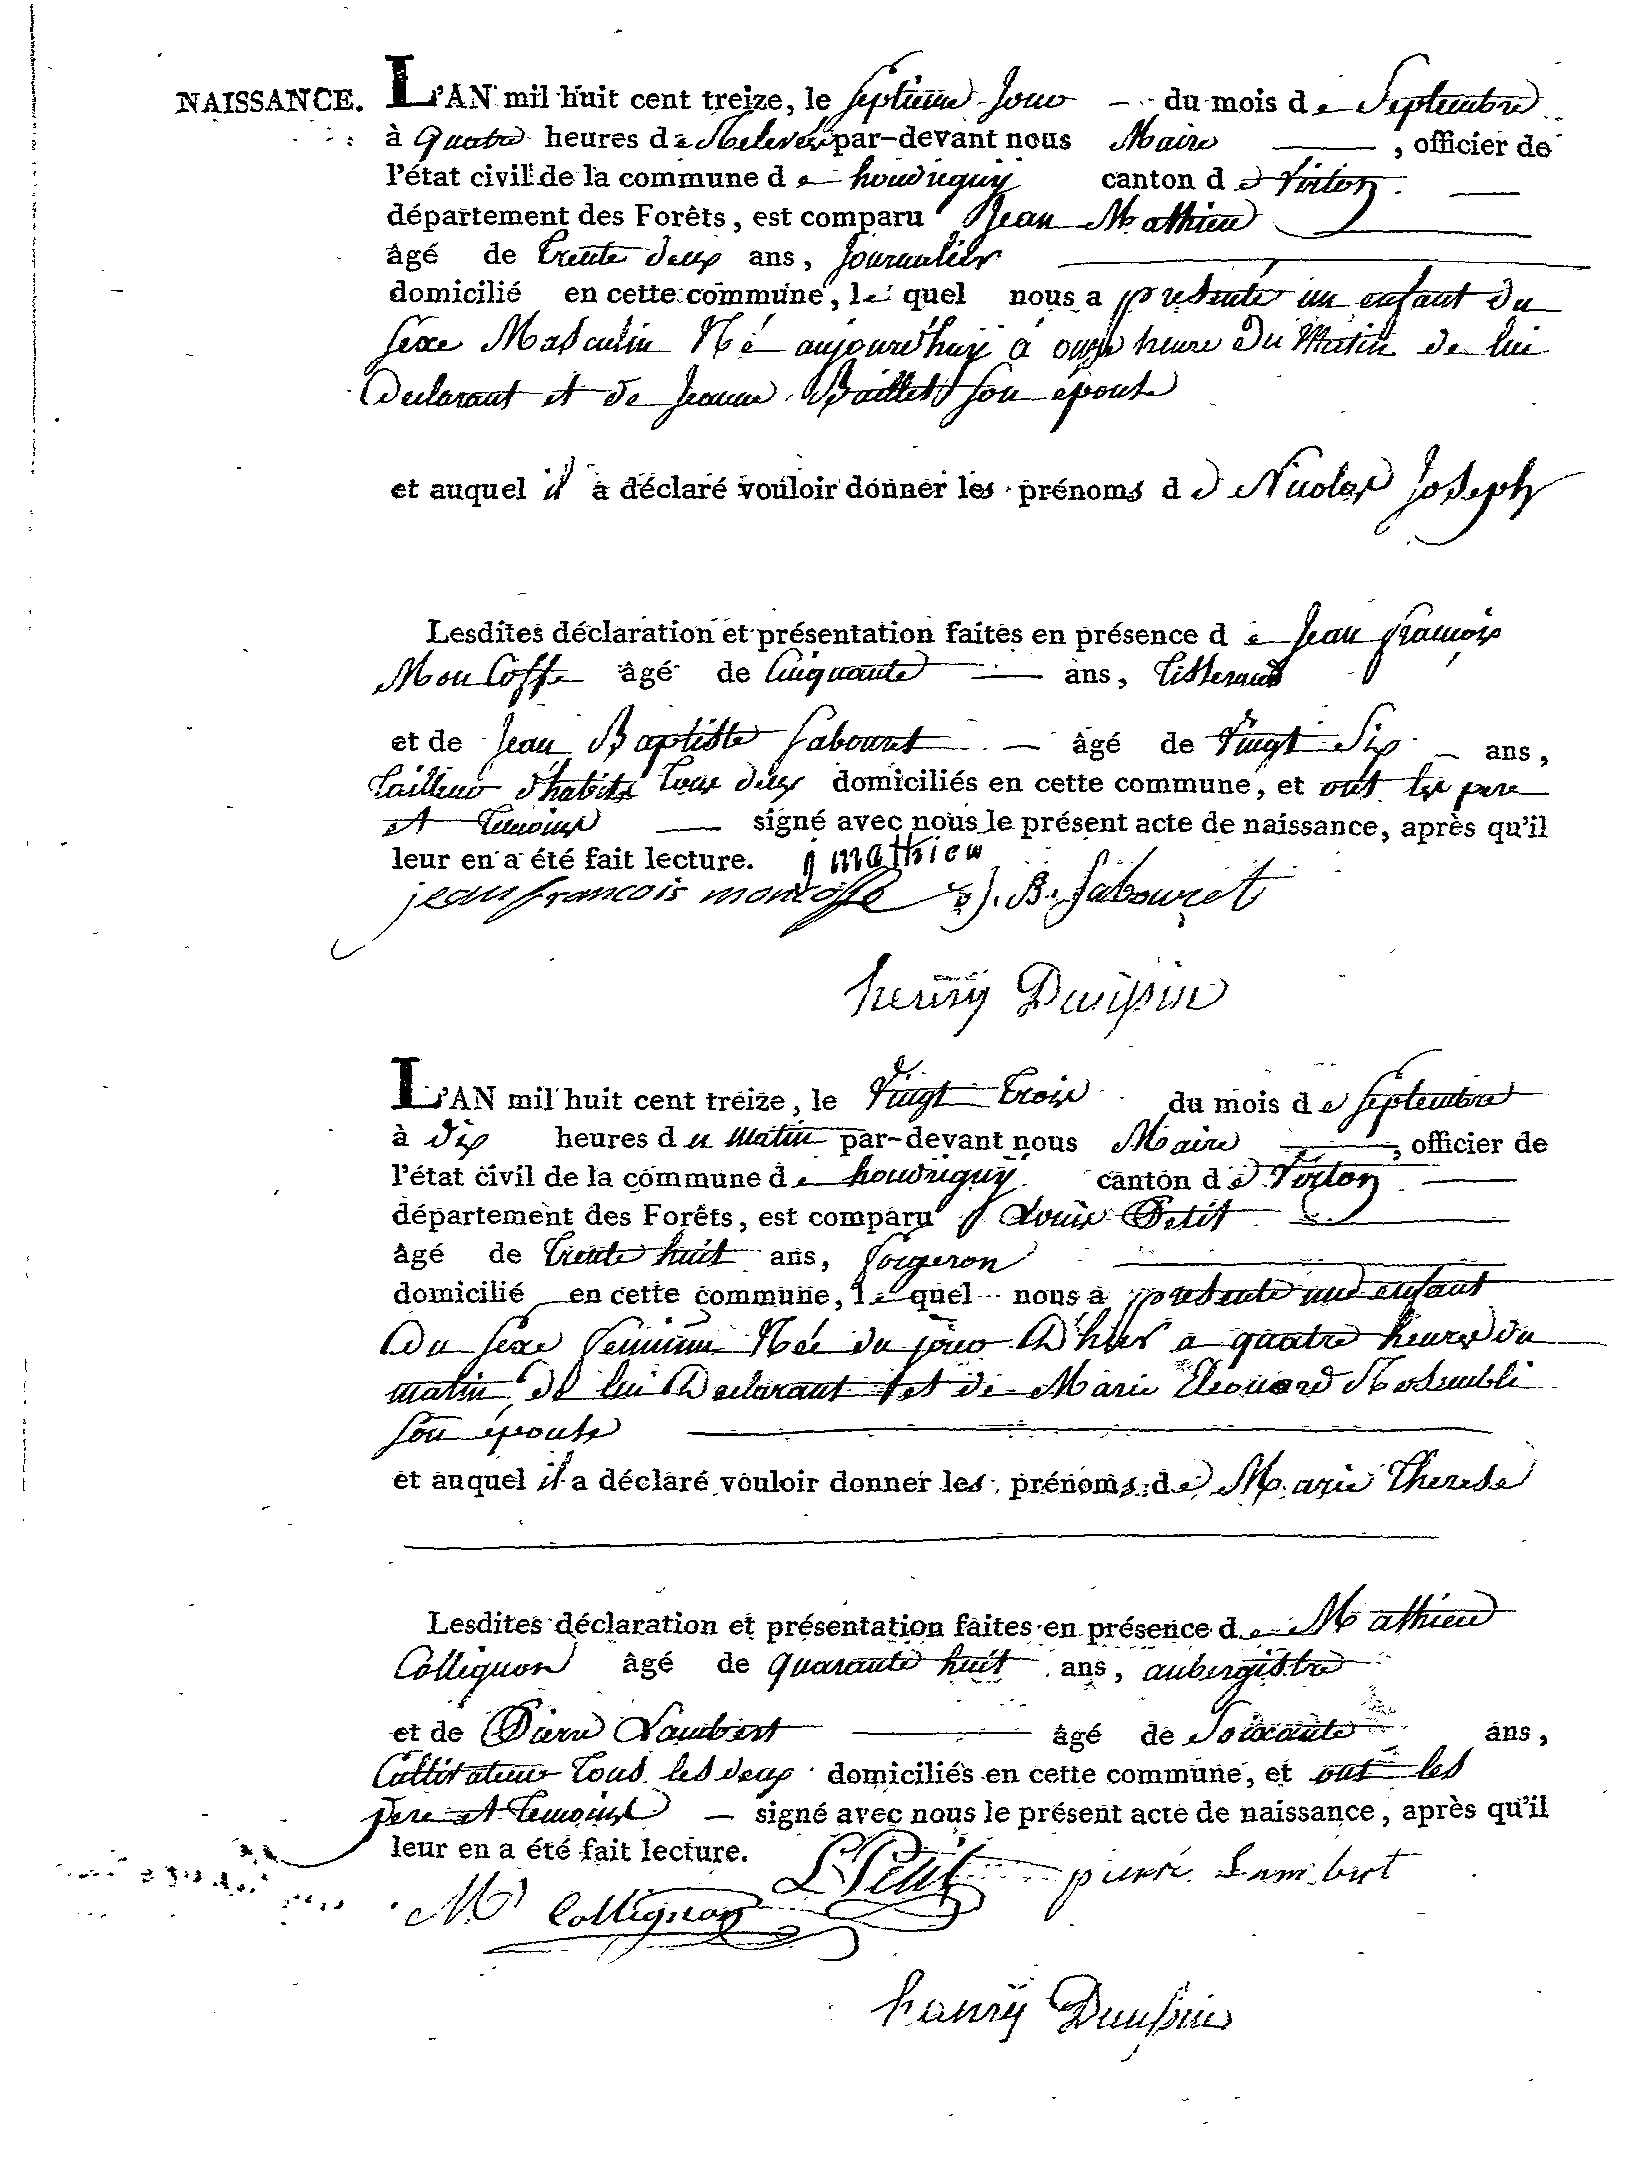 NAISSANCE. L'AN mil huit cent treize, le septieme jour du mois de Septembre
à quatre heures de Relevée par-devant nous Maire, officier de
l'état civil de la commune de houdrigny canton de Virton
département des Forêts, est comparu Jean Mathieu
âgé de trente deux ans, journalier
domicilié en cette commune, le quel nous a presenté un enfant du
sexe Masculin Né aujourd'huy à onze heure du Matin de lui
Declarant et de Jeanne Baillet son épouse
et auquel il a déclaré vouloir donner les prénoms de Nicolas Joseph
Lesdites déclaration et présentation faites en présence de Jean françois
Moncoffe âgé de Cinquante ans, tisserand
et de Jean Baptiste Sabouret âgé de Vingt Six ans,
tailleur d'habits tous deux domiciliés en cette commune, et ont les pere
et temoins signé avec nous le présent acte de naissance, après qu'il
leur en a été fait lecture. J mathieu
jean francois moncoffe J. B. Sabouret
henry Dauphin
L'AN mil huit cent treize, le Vingt trois du mois de Septembre
à dix heures du matin par-devant nous Maire, officier de
l'état civil de la commune de houdrigny canton de Virton
département des Forêts, est comparu Louis Petit
âgé de trente huit ans, forgeron
domicilié en cette commune, le quel nous a presenté une enfant
Du sexe feminin Née du jour D'hier a quatre heures du
matin de lui Declarant et de Marie
son épouse
et auquel il a déclaré vouloir donner les prénoms de Marie Therese
Lesdites déclaration et présentation faites en présence de Mathieu
Collignon âgé de quarante huit ans, aubergiste
et de Pierre Lambert âgé de Soixante ans,
Cultivateur tous les deux domiciliés en cette commune, et ont les
pere et temoins signé avec nous le présent acte de naissance, après qu'il
leur en a été fait lecture. L Petit pierre Lambert
M Collignon
henry Dauphin